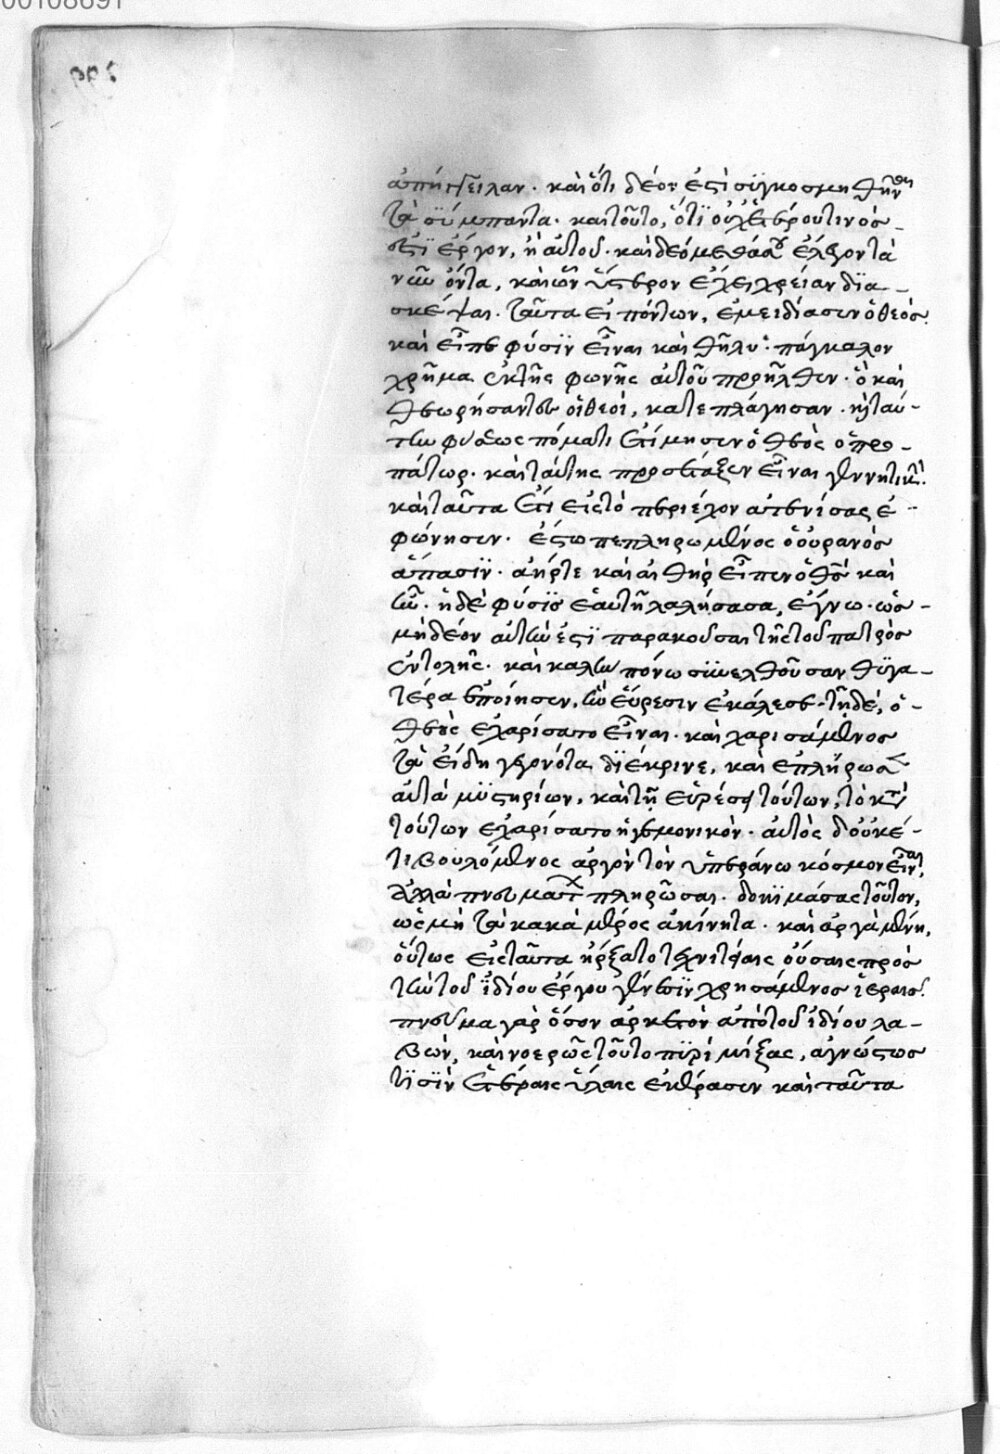 00108691
ἀπήγγειλαν. καὶ ὅτι δέον ἐστὶ συγκοσμηθῆναι
τὰ σύμπαντα. καὶ τοῦτο, ὅτι οὐχ ἑτέρου τινὸς
ἐστὶ ἔργον, ἢ αὐτοῦ. καὶ δεόμεθά σου ἔλεγον τὰ
νῦν ὄντα, καὶ ὧν ὕστερον ἔχει χρείαν δια-
σκέψαι. ταῦτα εἰπόντων, ἐμειδίασεν ὁ θεός.
καὶ εἶπε φύσιν εἶναι καὶ θῆλυ. πάγκαλον
χρῆμα ἐκ τῆς φωνῆς αὐτοῦ προῆλθεν. ὃ καὶ
θεωρήσαντες οἱ θεοί, κατεπλάγησαν. καὶ ταύ-
την φύσεως ἐτίμησεν ὁ θεὸς ὁ προ-
πάτωρ. καὶ ταύτης προσέταξεν εἶναι γεννητικὴν.
καὶ ταῦτα ἔτι εἰς τὸ περιέχον ἀτενίσας ἐ-
φώνησεν. ἔστω πεπληρωμένος ὁ οὐρανὸς
ἅπασιν. ἀήρ τε καὶ αἰθὴρ εἶπεν ὁ θεὸς καὶ
ἦν. ἡ δὲ φύσις ἑαυτῇ λαλήσασα, ἔγνω. ὡς
μὴ δέον αὐτὴν ἐστὶ παρακοῦσαι τῆς τοῦ πατρὸς
ἐντολῆς. καὶ καλὴν πόνω συνελθοῦσαν θυγα-
τέρα ἐποίησεν, ἣν εὕρεσιν ἐκάλεσε. τῇ δὲ, ὁ
θεὸς ἐχαρίσατο εἶναι. καὶ χαρισάμενος
τὰ εἴδη γεγονότα διέκρινε, καὶ ἐπλήρωσεν
αὐτὰ μυστηρίων, καὶ τῇ εὑρέσει τούτων, τὸ κατὰ
τούτων ἐχαρίσατο ἡγεμονικὸν. αὐτὸς δ' οὐκέ-
τι βουλόμενος ἀργὸν τὸν ὑπεράνω κόσμον εἶναι,
ἀλλὰ πνευμάτων πληρῶσαι. δοκιμάσας τοῦτον,
ὡς μὴ τὰ κατὰ μέρος ἀκίνητα. καὶ ἀργὰ μένῃ,
οὕτως εἰς ταῦτα ἤρξατο τεχνιτείαις οὔσαις πρὸς
τὴν τοῦ ἰδίου ἔργου γένεσιν χρησάμενος ἱεραῖς.
πνεῦμα γὰρ ὅσον ἀρκετὸν ἀπὸ τοῦ ἰδίου λα-
βών, καὶ νοερῶς τοῦτο πυρὶ μίξας, ἀγνώστως
τισὶν ἑτέραις ὕλαις ἐκέρασεν καὶ ταῦτα